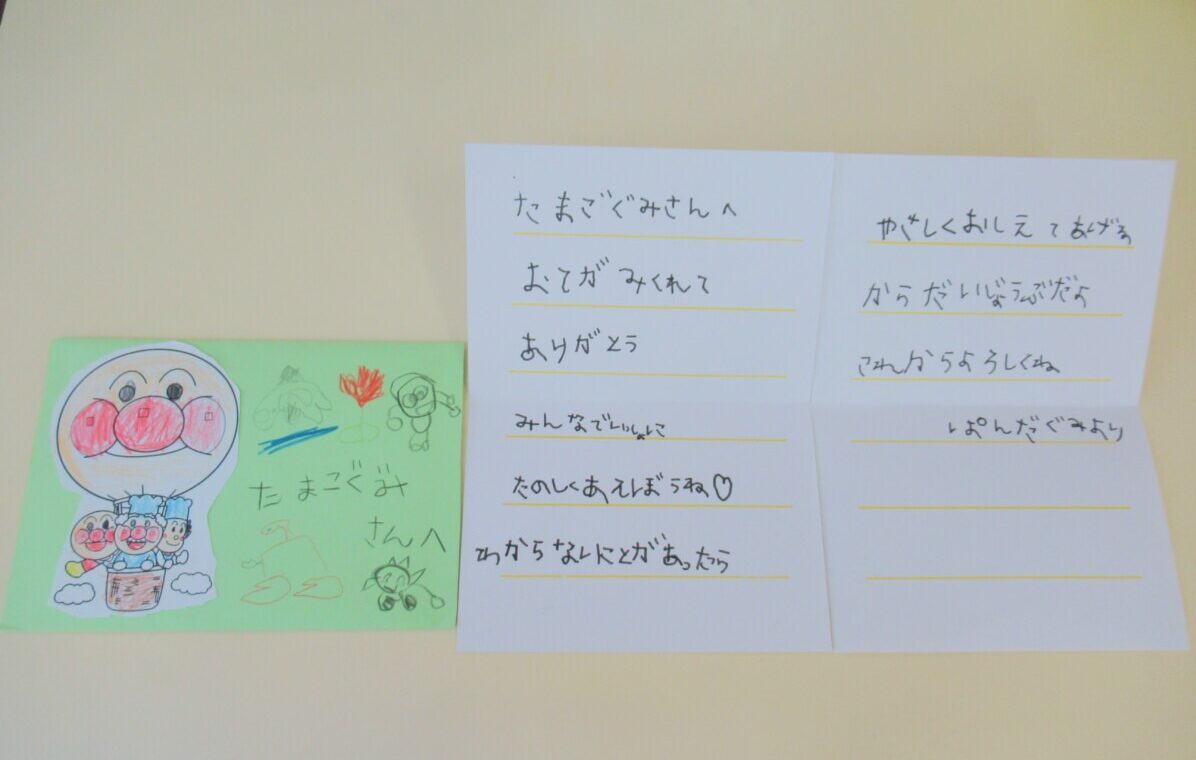 たまごぐみ
さんへ
たまごぐみさんへ
おてがみくれて
ありがとう
みんなでいっしょに
たのしくあそぼうね♡
わからないことがあったら
やさしくおしえてあげる
からだいじょうぶだよ
これからよろしくね
ぱんだぐみより